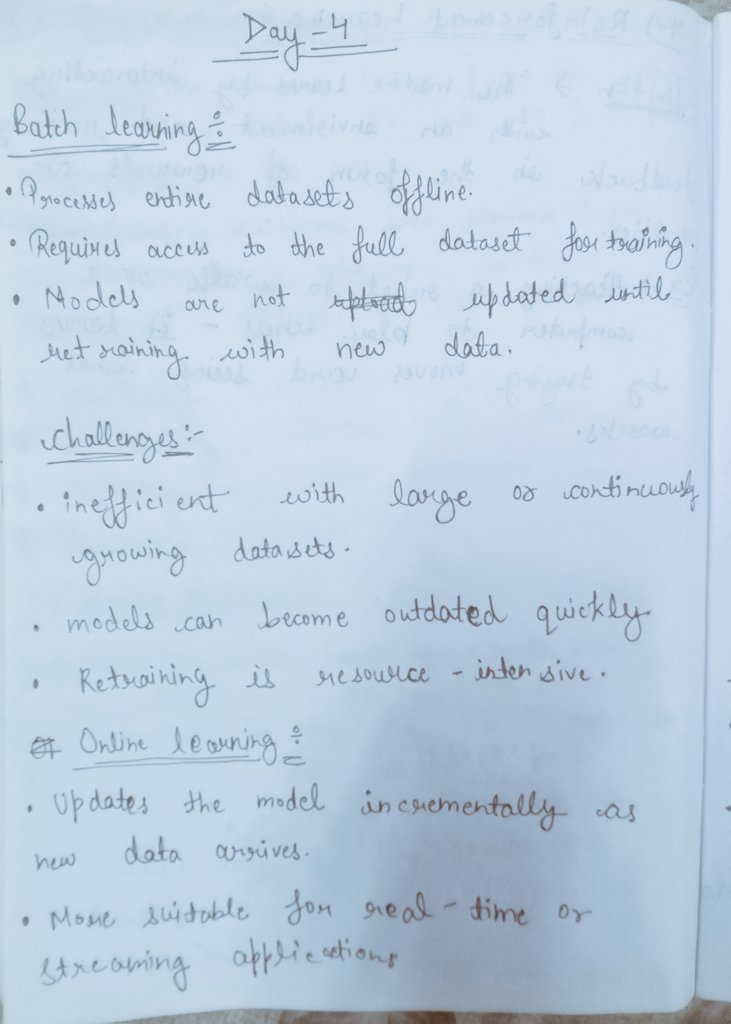 Day - 4
Batch learning ÷
• Processes entire datasets offline.
• Requires access to the full dataset for training.
• Models are not upload updated until
retraining with new data.
Challenges :-
• inefficient with large or continuously
growing datasets.
• models can become outdated quickly
• Retraining is resource - intensive.
Online learning ÷
• Updates the model incrementally as
new data arrives.
• More suitable for real - time or
streaming applications